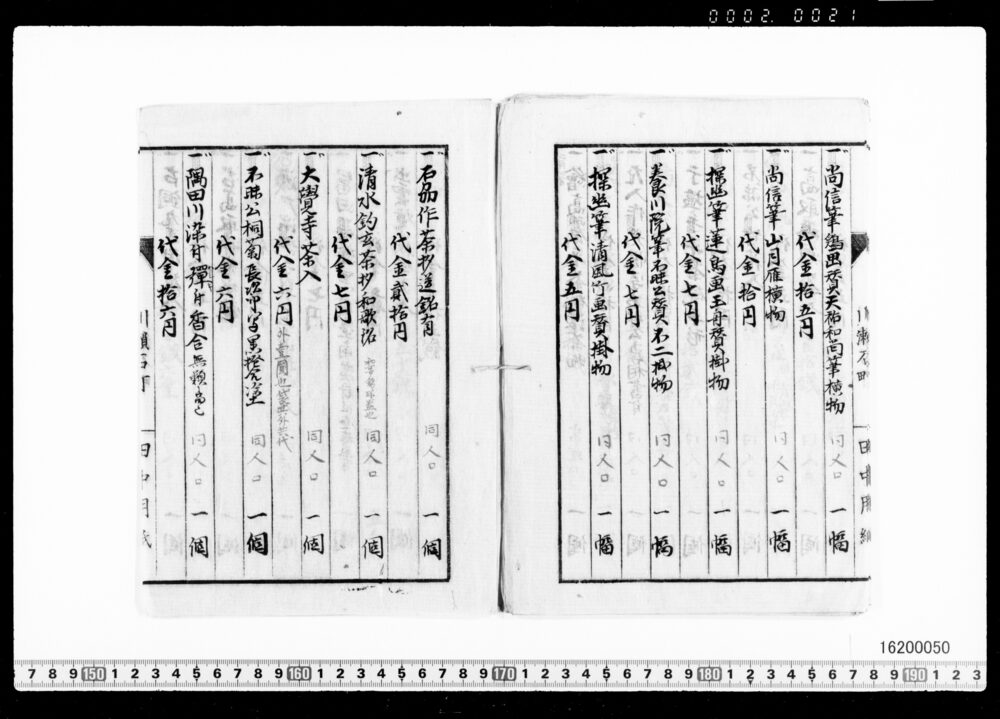 0002. 0021
一 尚信筆 画賛天祐和尚筆横物 同人口 一幅
代金拾五円
一 尚信筆山月雁横物 同人口 一幅
代金拾円
一 探幽筆蓮鳥画玉舟賛掛物 同人口 一幅
代金七円
一 養川院筆不昧公賛不二掛物 同人口 一幅
代金七円
一 探幽筆清風竹画賛掛物 同人口 一幅
代金五円
川瀬石町 田中用紙
一 石州作茶杓送銘有 同人口 一個
代金貳拾円
一 清水釣玄茶杓和歌銘 同人口 一個
代金七円
一 大覺寺茶入 同人口 一個
代金六円
一 不昧公祠菊長次 写黒 塗 同人口 一個
代金六円
一 隅田川染付 香合 同人口 一個
代金拾六円
川瀬石町 田中用紙
16200050
7 8 9 150 1 2 3 4 5 6 7 8 9 160 1 2 3 4 5 6 7 8 9 170 1 2 3 4 5 6 7 8 9 180 1 2 3 4 5 6 7 8 9 190 1 2 3